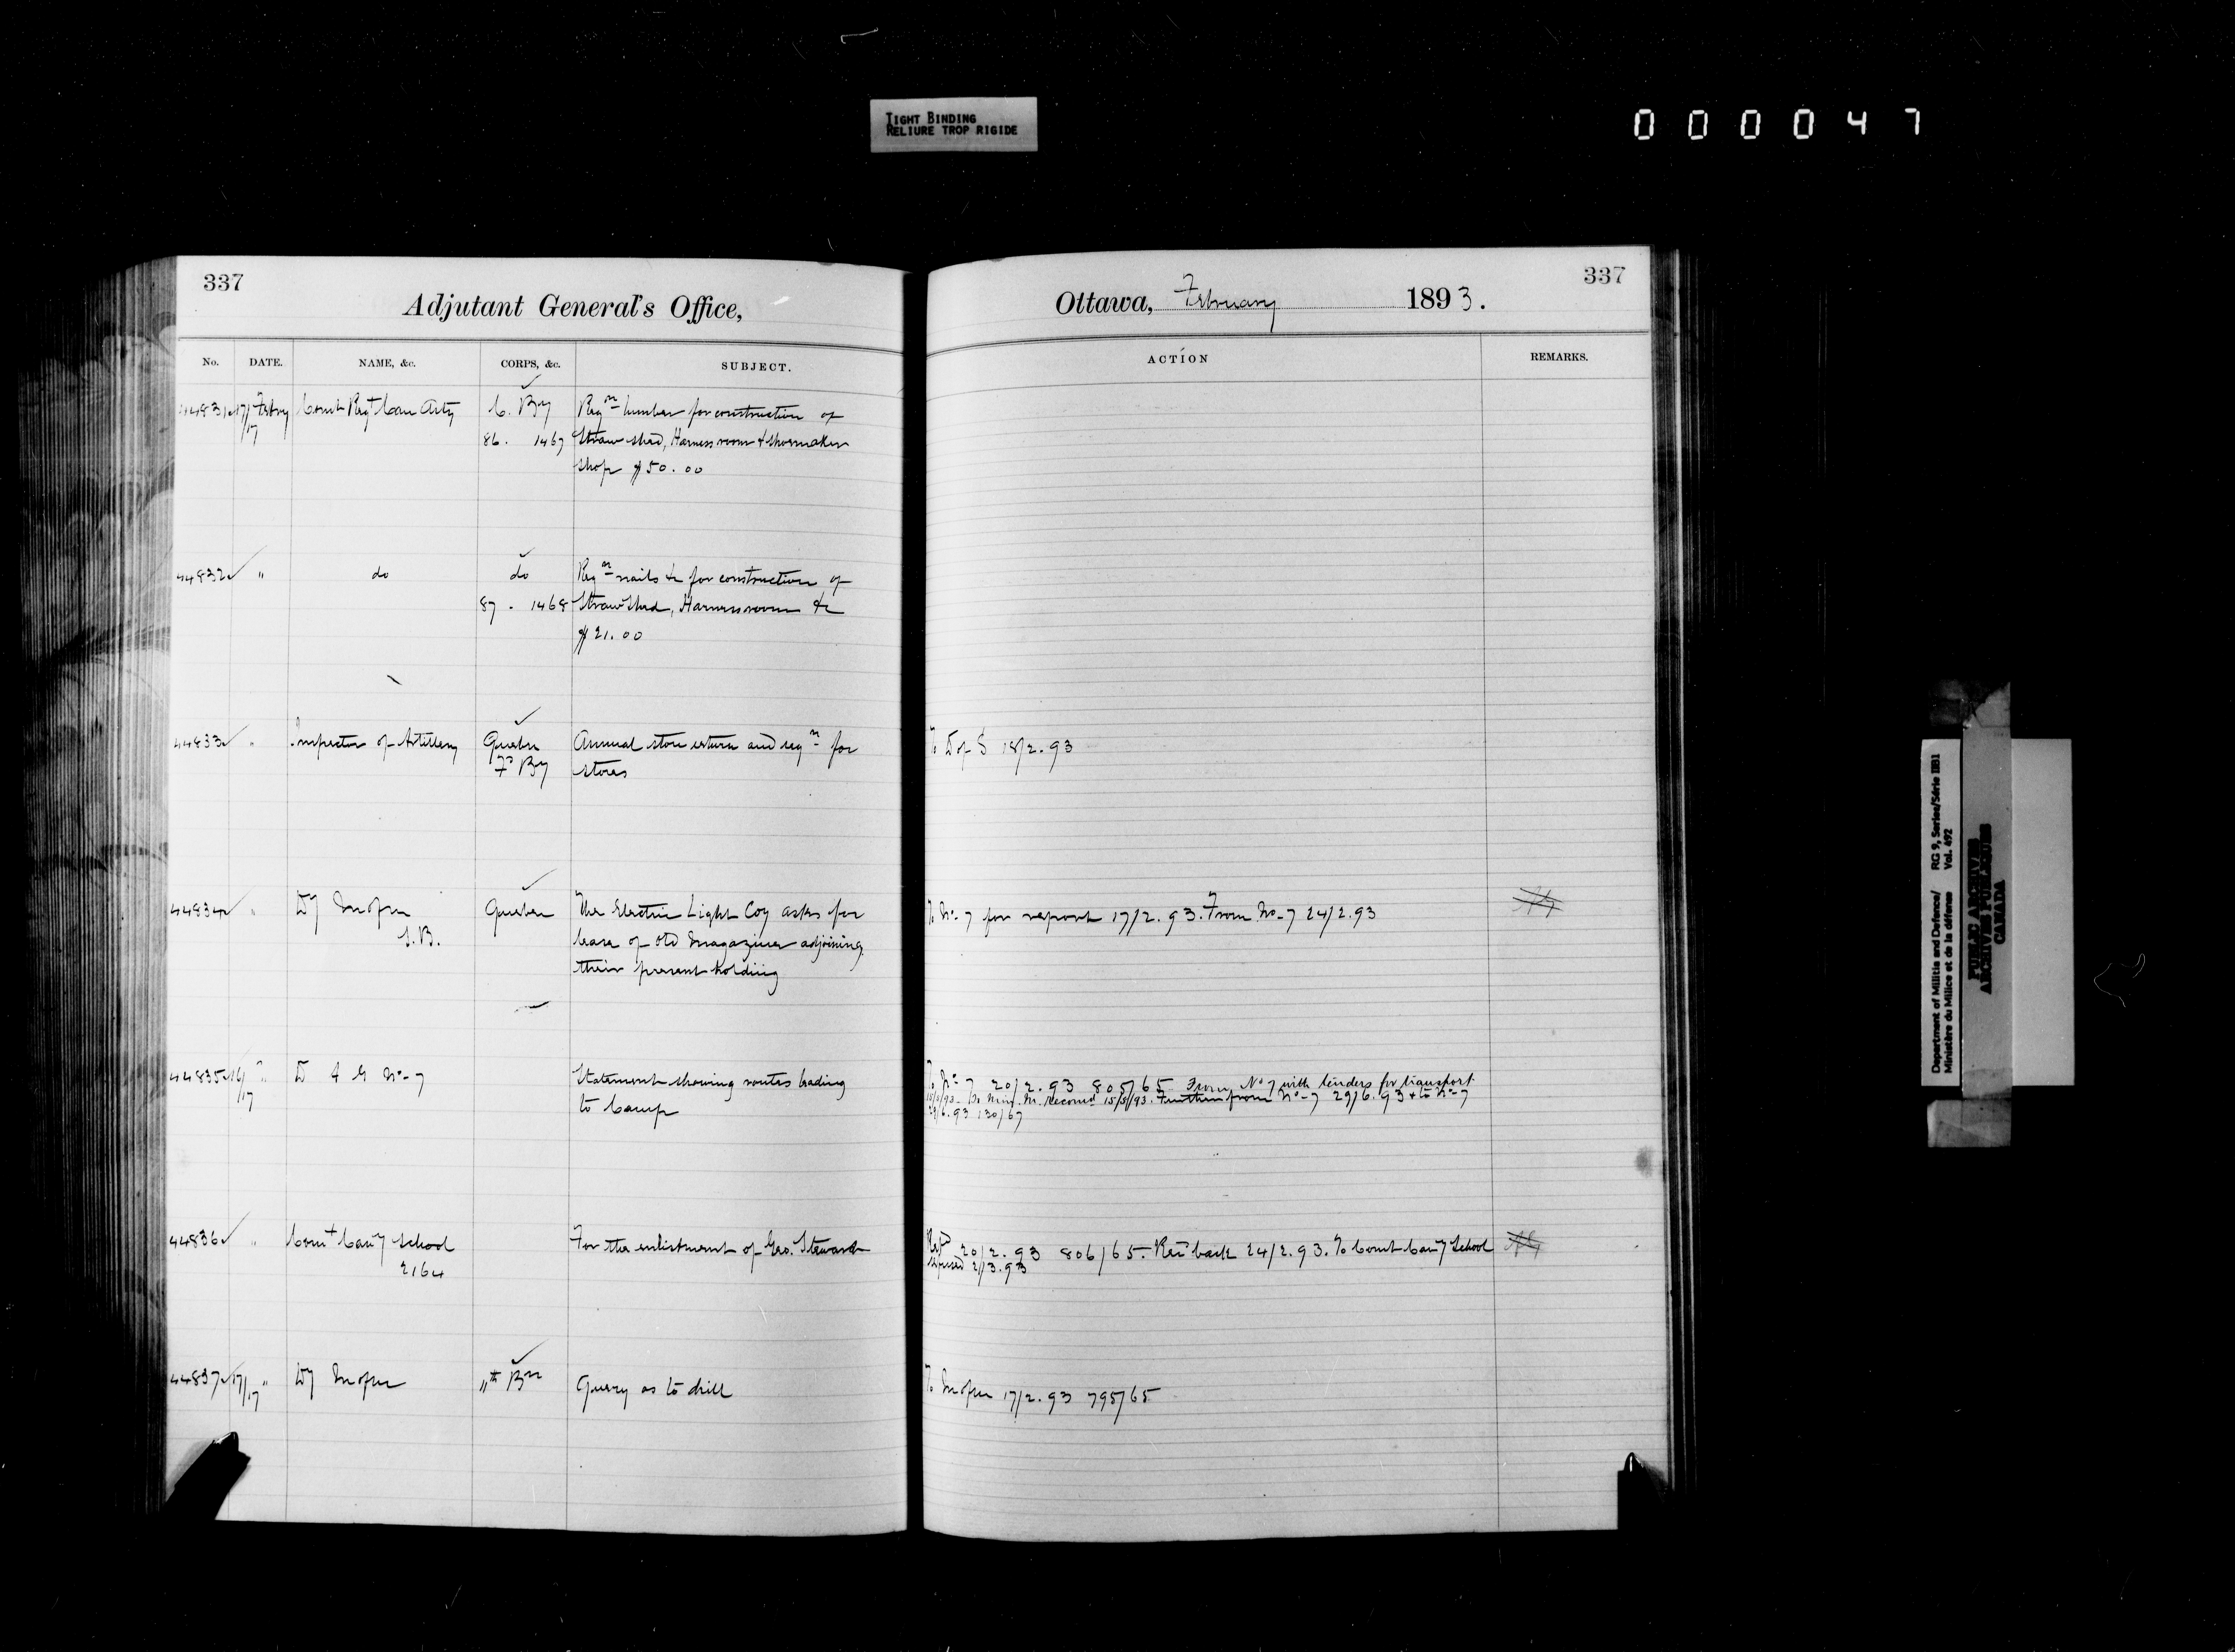 TIGHT BINDING
RELIURE TROP RIGIDE
000047
337
Adjutant General's Office,
No. DATE. NAME, &c. CORPS, &c. SUBJECT.
44831 17/17 Febry Comdt Regt Can Arty C. By Reqn lumber for construction of
86. 1467 Straw shed, Harness room & Shoemaker
shop $50.00
44832 " do do Reqn nails &c for construction of
87. 1468 Straw Shed, Harness room &c
$21.00
44833 " Inspector of Artillery Quebec Annual store return and reqn for
Fd By stores
44834 " Dy Quebec The Electric Light Coy asks for
lease of old magazines adjoining
their present holding
44835 16/17 " D A G No 7 Statement showing routes leading
to Camp
44836 " Comt Cavy School For the enlistment of Geo. Steward
2164
44837 17/17 " Dy Bn Query as to drill
337
Ottawa, February 1893.
ACTION REMARKS.
To D of S 18/2.93
To No 7 for report 17/2.93. From No 7 24/2.93
To No 7 20/2.93 805/65 From No 7 with tenders for transport
15/5/93. Further from No 7 29/6.93 & to No 7
29/6.93 130/67
20/2.93 806/65. Recd back 24/2.93. To Comt Cavy School
2/3.93
To 17/2.93 795/65
Department of Militia and Defence/ RG 9, Series/Série IIB1
Ministère du Milice et de la défense Vol. 492
PUBLIC ARCHIVES
ARCHIVES PUBLIQUES
CANADA